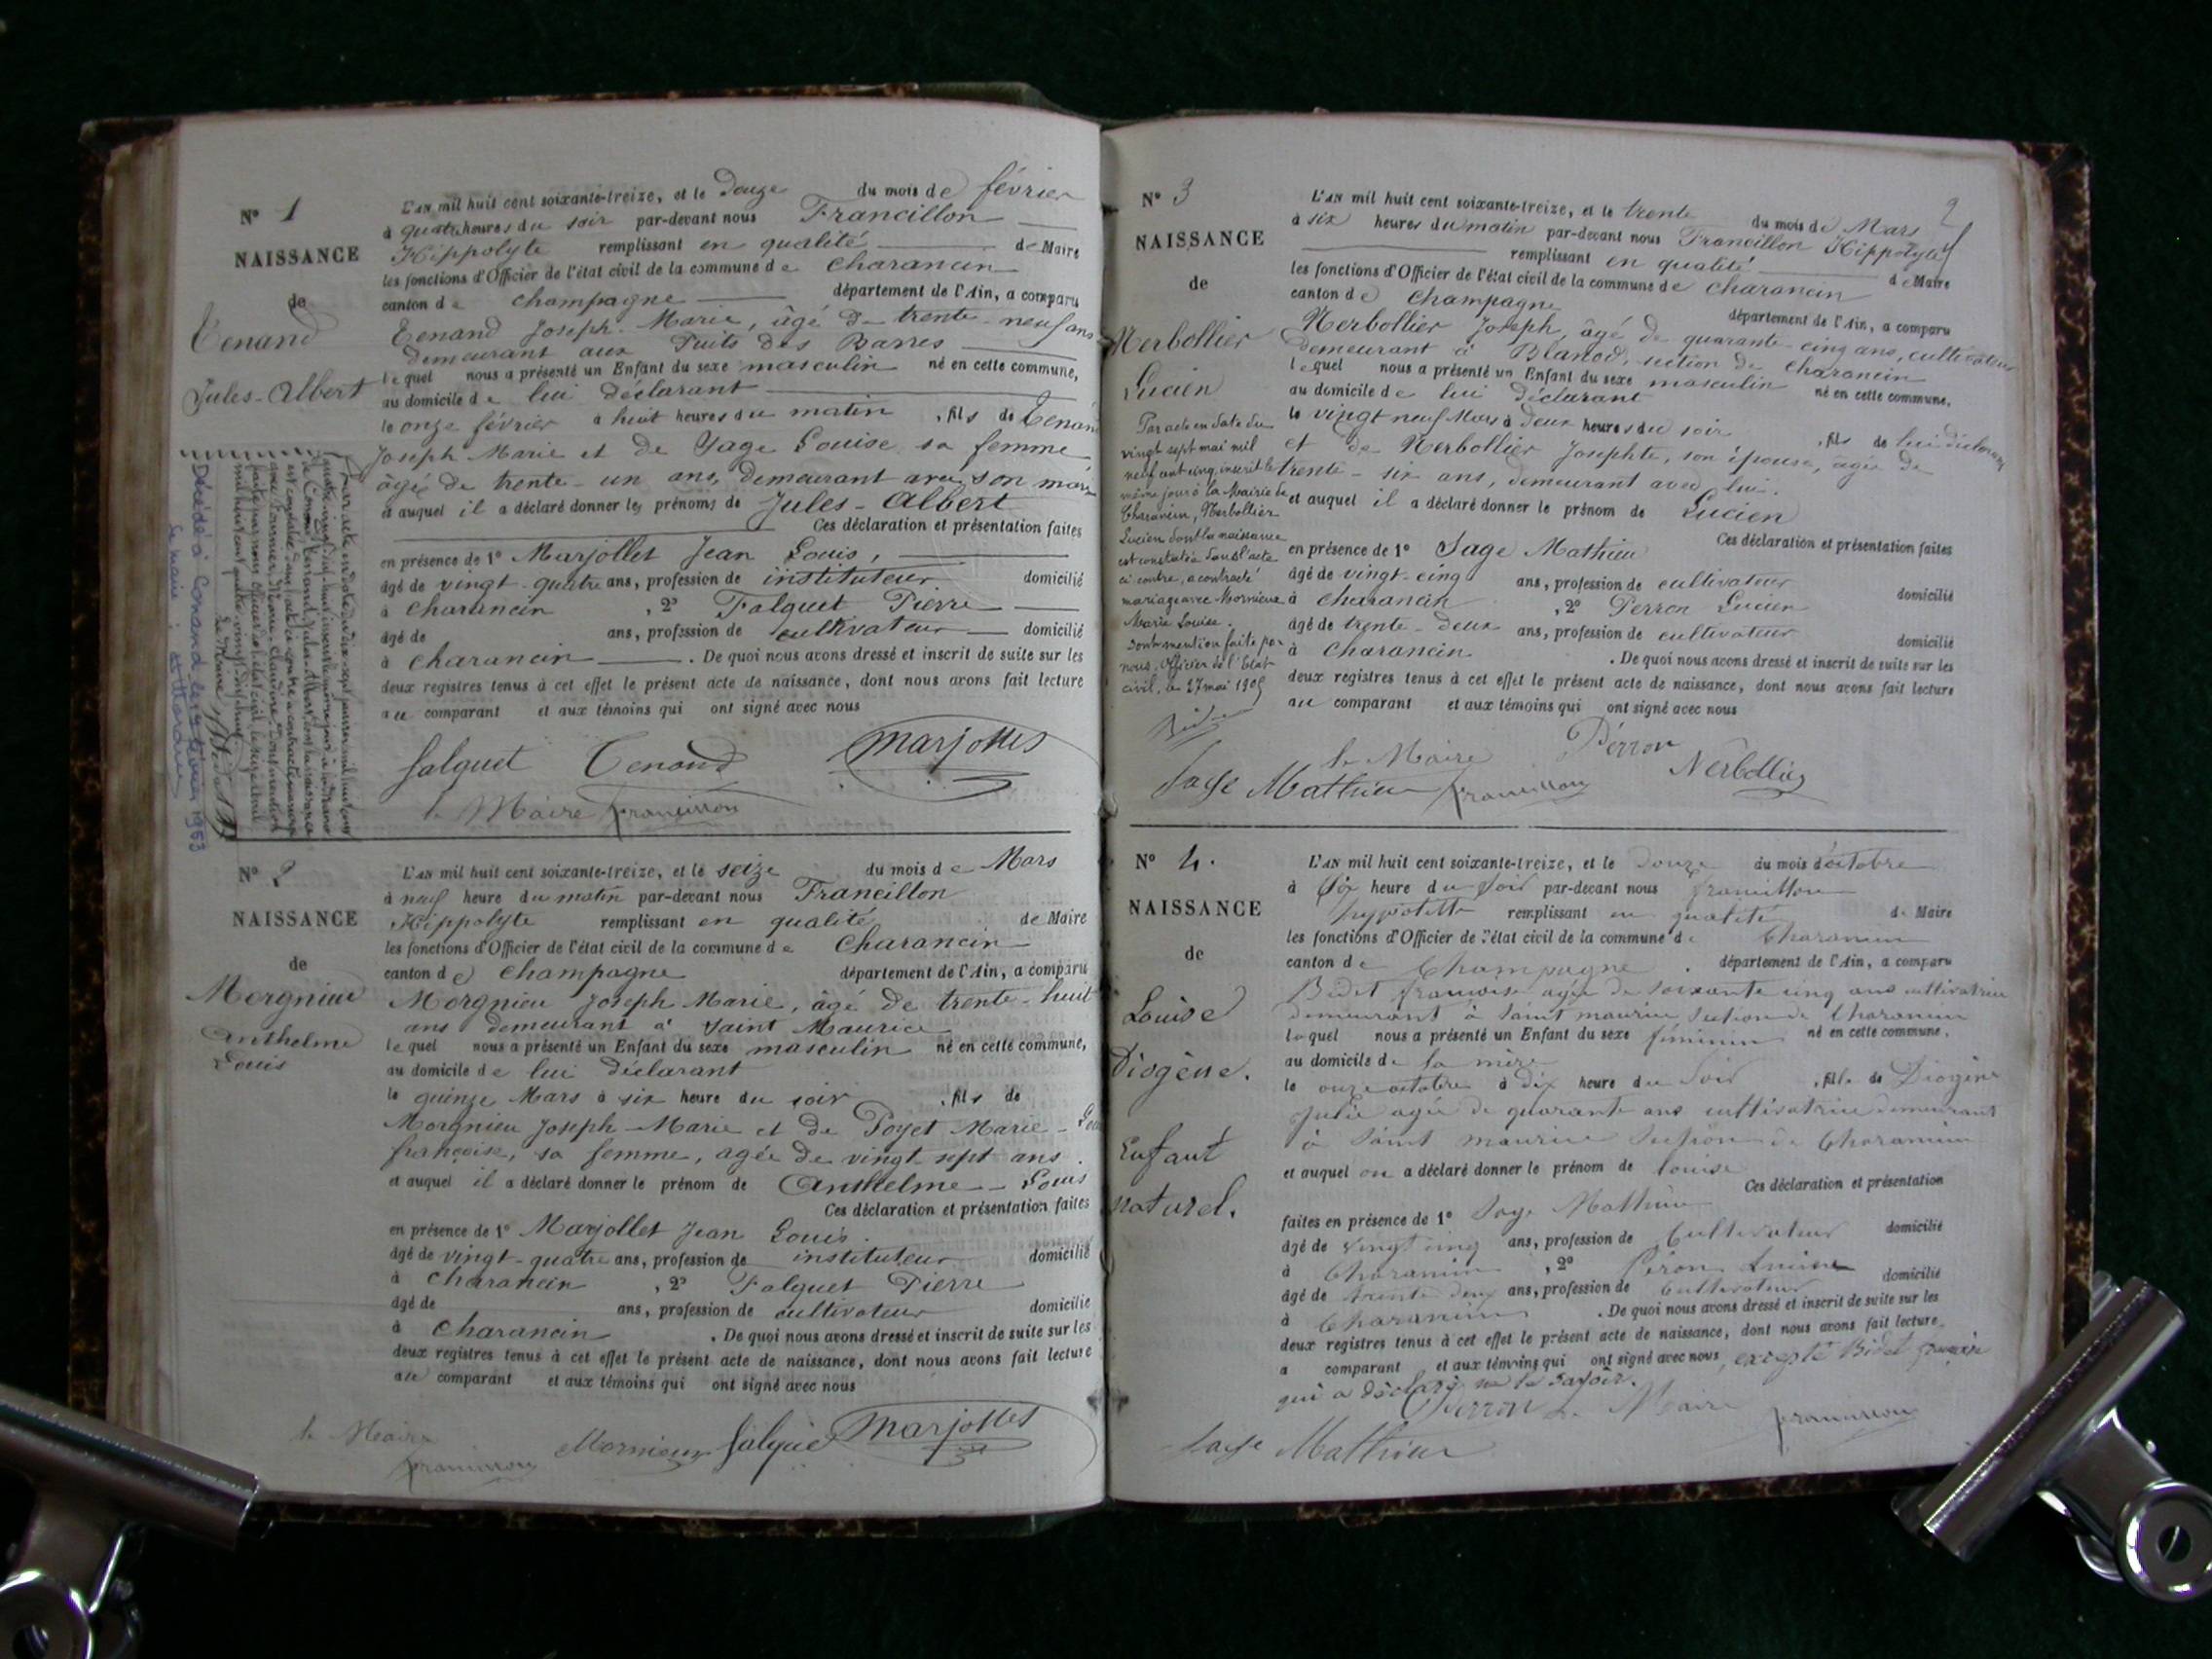 N° 1
NAISSANCE
de
Tenand
Jules-Albert
L'AN mil huit cent soixante-treize, et le Douze du mois de février
à quatre heures du soir par-devant nous Francillon
Hippolyte remplissant en qualité de Maire
les fonctions d'Officier de l'état civil de la commune de Charancin
canton de Champagne département de l'Ain, a comparu
Tenand Joseph-Marie, âgé de trente-neuf ans
demeurant aux Puits des Barres
lequel nous a présenté un Enfant du sexe masculin né en cette commune,
au domicile de lui déclarant
le onze février à huit heures du matin, fils de Tenand
Joseph Marie et de Sage Louise sa femme
âgée de trente-un ans, demeurant avec son mari
et auquel il a déclaré donner les prénoms de Jules-Albert
Ces déclaration et présentation faites
en présence de 1° Marjollet Jean Louis,
âgé de vingt-quatre ans, profession de instituteur domicilié
à Charancin, 2° Falquet Pierre
âgé de ans, profession de cultivateur domicilié
à Charancin. De quoi nous avons dressé et inscrit de suite sur les
deux registres tenus à cet effet le présent acte de naissance, dont nous avons fait lecture
au comparant et aux témoins qui ont signé avec nous
falquet Tenand Marjollet
le Maire francillon
Décédé à Conand le février 1953
N° 2
NAISSANCE
de
Morgnieu
Anthelme
Louis
L'AN mil huit cent soixante-treize, et le seize du mois de Mars
à neuf heure du matin par-devant nous Francillon
Hippolyte remplissant en qualité de Maire
les fonctions d'Officier de l'état civil de la commune de Charancin
canton de Champagne département de l'Ain, a comparu
Morgnieu Joseph Marie, âgé de trente-huit
ans demeurant à Saint Maurice
lequel nous a présenté un Enfant du sexe masculin né en cette commune,
au domicile de lui déclarant
le quinze Mars à six heure du soir, fils de
Morgnieu Joseph-Marie et de Poyet Marie-
françoise, sa femme, agée de vingt sept ans.
et auquel il a déclaré donner le prénom de Anthelme-Louis
Ces déclaration et présentation faites
en présence de 1° Marjollet Jean Louis.
âgé de vingt-quatre ans, profession de instituteur domicilié
à Charancin, 2° Falquet Pierre
âgé de ans, profession de cultivateur domicilié
à Charancin. De quoi nous avons dressé et inscrit de suite sur les
deux registres tenus à cet effet le présent acte de naissance, dont nous avons fait lecture
au comparant et aux témoins qui ont signé avec nous
le Maire
francillon Mornieu Marjollet
2
N° 3
NAISSANCE
de
Nerbollier
Lucien
Par acte en date du
vingt sept mai mil
neuf cent cinq, inscrit le
même jour à la Mairie de
Charancin, Nerbollier
Lucien dont la naissance
est constatée dans l'acte
ci-contre, a contracté
mariage avec Mornieu
Marie Louise.
dont mention faite par
nous, Officier de l'Etat
civil, le 27 mai 1905
L'AN mil huit cent soixante-treize, et le trente du mois de Mars
à six heures du matin par-devant nous Francillon Hippolyte
remplissant en qualité de Maire
les fonctions d'Officier de l'état civil de la commune de Charancin
canton de Champagne département de l'Ain, a comparu
Nerbollier Joseph, âgé de quarante-cinq ans, cultivateur
demeurant à Blanod, section de Charancin
lequel nous a présenté un Enfant du sexe masculin né en cette commune,
au domicile de lui déclarant
le vingt neuf Mars à deux heures du soir, fils de lui déclarant
et de Nerbollier Josephte, son épouse, âgée de
trente-six ans, demeurant avec lui.
et auquel il a déclaré donner le prénom de Lucien
Ces déclaration et présentation faites
en présence de 1° Sage Mathieu
âgé de vingt-cinq ans, profession de cultivateur domicilié
à Charancin, 2° Perron Lucien
âgé de trente-deux ans, profession de cultivateur domicilié
à Charancin. De quoi nous avons dressé et inscrit de suite sur les
deux registres tenus à cet effet le présent acte de naissance, dont nous avons fait lecture
au comparant et aux témoins qui ont signé avec nous
le Maire Perron Nerbollier
Sage Mathieu francillon
N° 4.
NAISSANCE
de
Louise
Diogène.
Enfant
naturel.
L'AN mil huit cent soixante-treize, et le douze du mois d'octobre
à six heure du soir par-devant nous francillon
remplissant en qualité de Maire
les fonctions d'Officier de l'état civil de la commune de Charancin
canton de Champagne. département de l'Ain, a comparu
Bidet françoise agée de soixante cinq ans cultivatrice
demeurant à Saint maurice section de Charancin
laquel nous a présenté un Enfant du sexe féminin né en cette commune.
au domicile de la mère
le onze octobre à dix heure du soir, fille de Diogène
Julie agée de quarante ans cultivatrice demeurant
à Saint maurice section de Charancin
et auquel on a déclaré donner le prénom de louise
Ces déclaration et présentation
faites en présence de 1° Sage Mathieu
âgé de vingt cinq ans, profession de Cultivateur domicilié
à Charancin, 2° Péron
âgé de trente deux ans, profession de Cultivateur domicilié
à Charancin. De quoi nous avons dressé et inscrit de suite sur les
deux registres tenus à cet effet le présent acte de naissance, dont nous avons fait lecture
a comparant et aux témoins qui ont signé avec nous, excepté Bidet françoise
qui a déclaré ne le savoir.
Perron le Maire francillon
Sage Mathieu